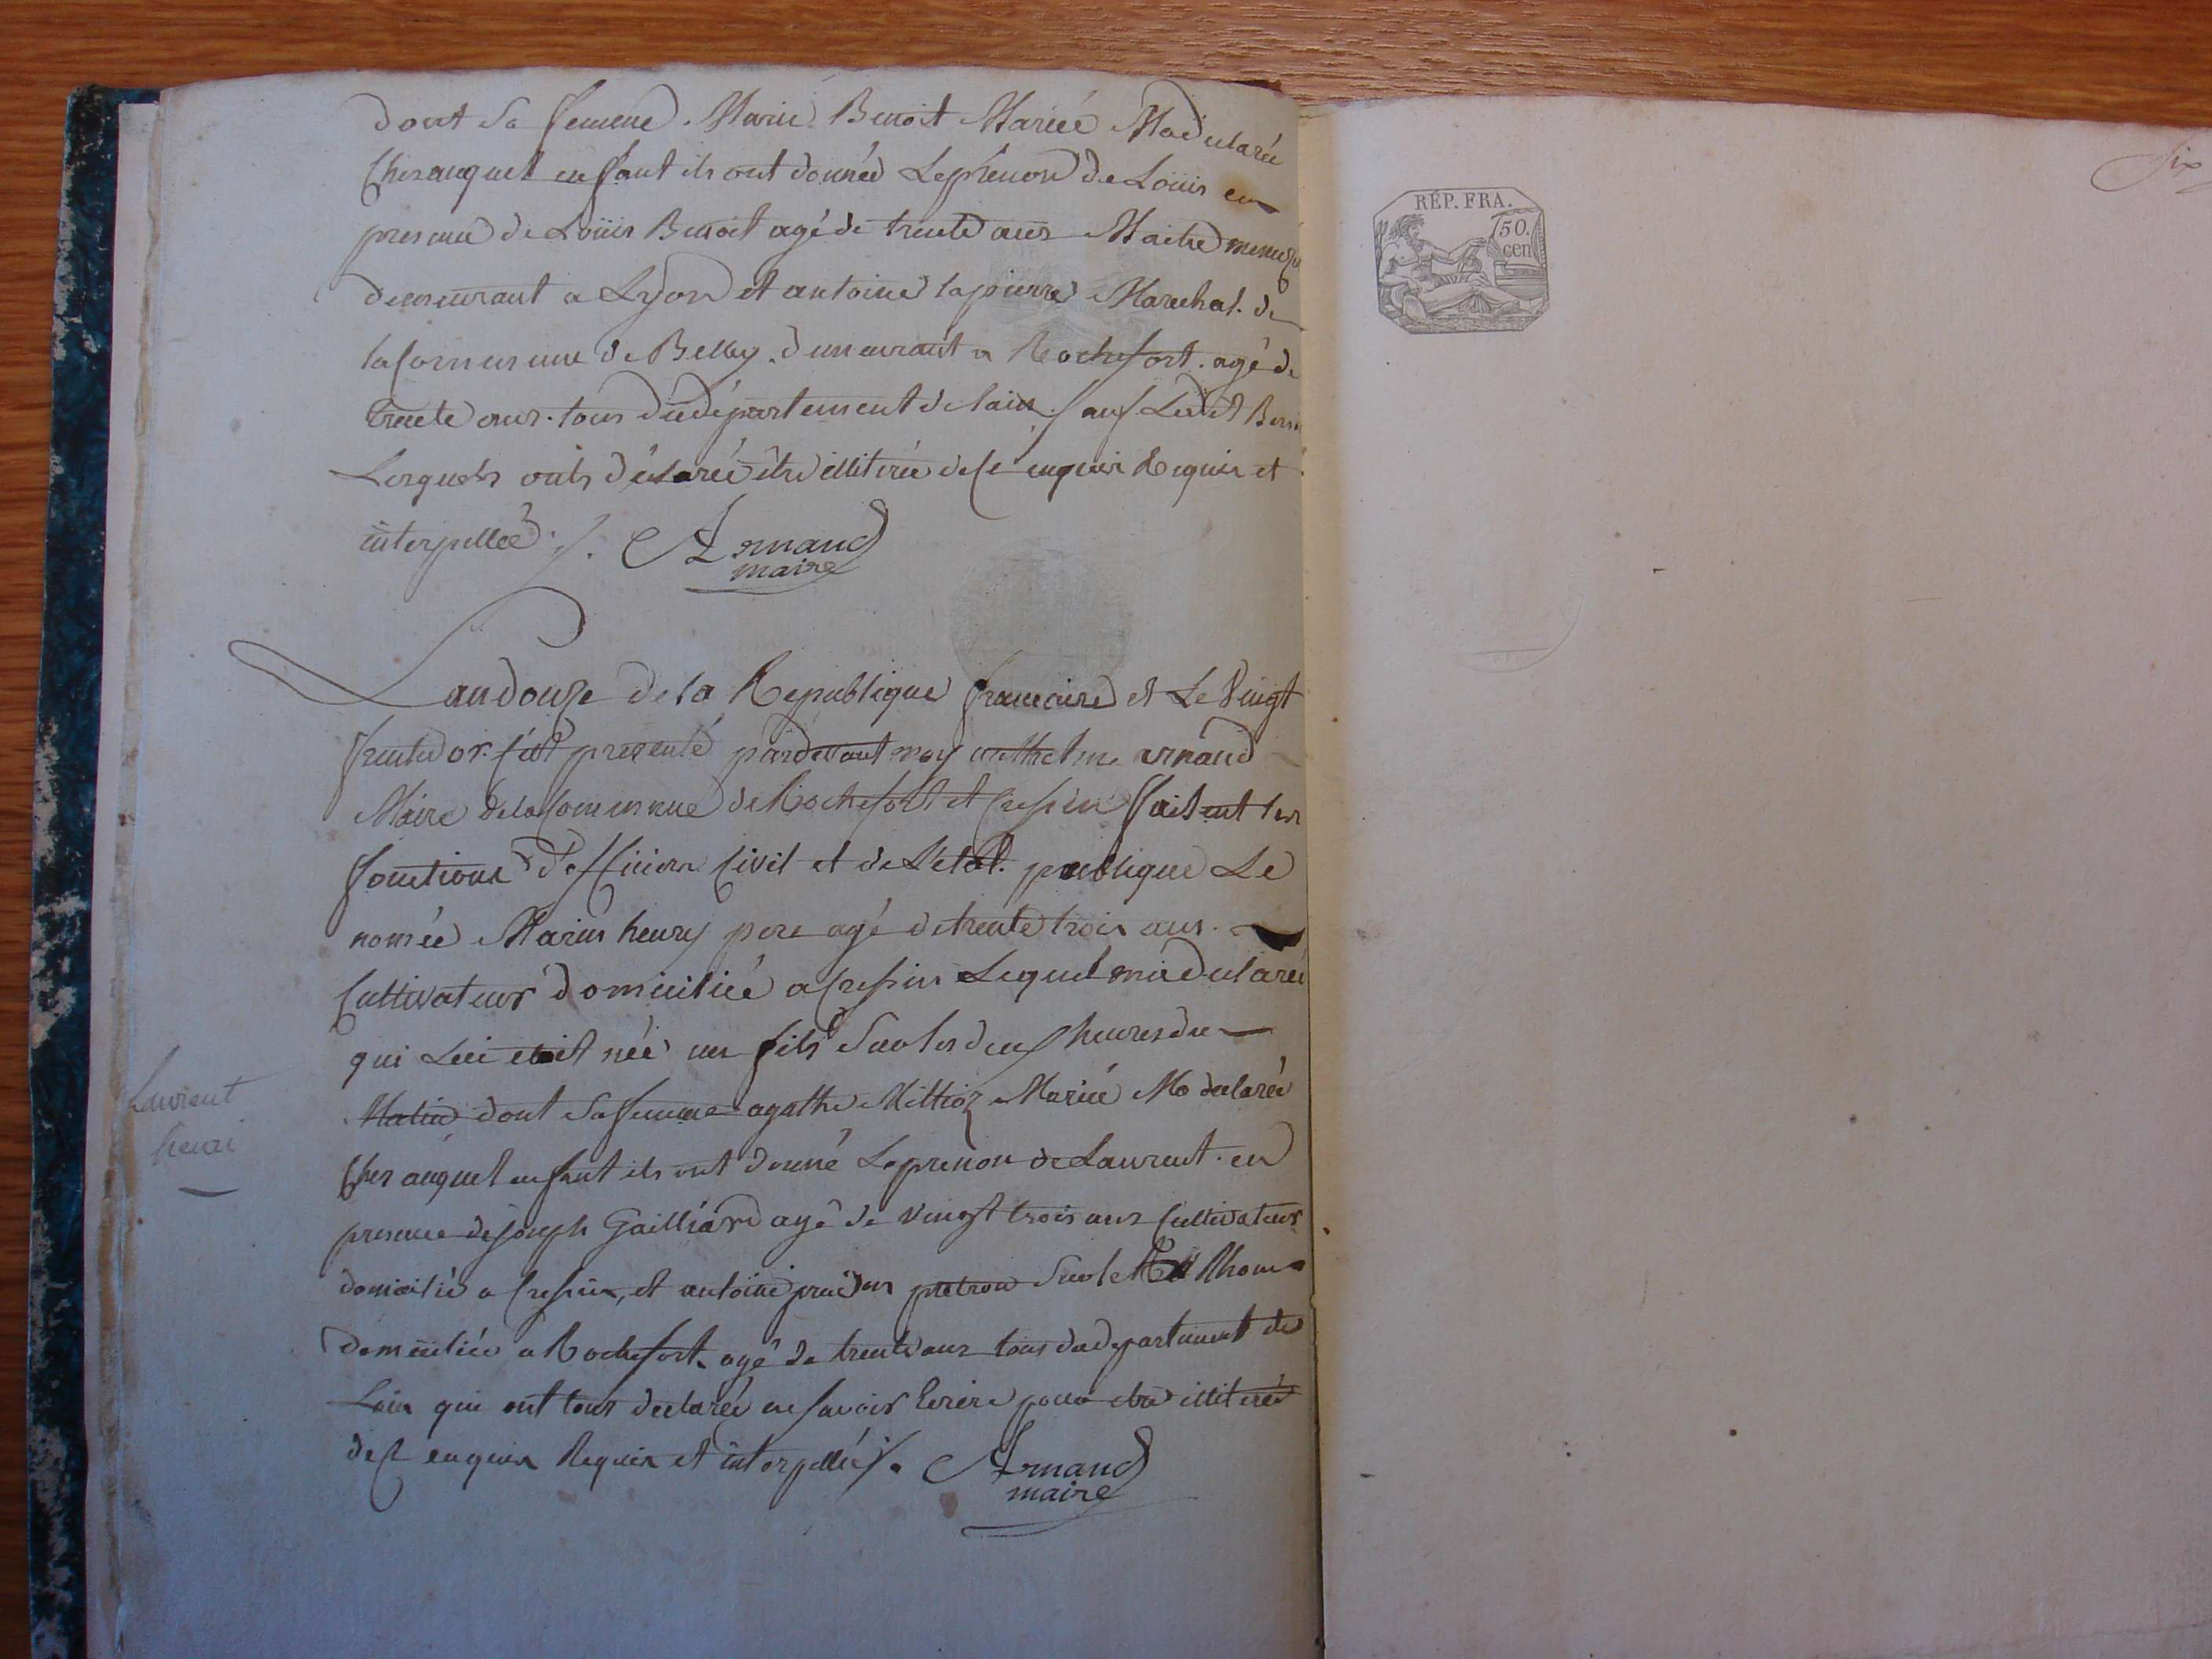 dont Sa femme. Marie Benoit Mariée M'a déclarée
Cher auquel enfant ils ont donnéd Le prénon de Loüis en
presence de Loüis Benoit agé de trente ans Maitre
demeurant a Lyon et antoine lapierre Marechal. de
la Commune de Belley. demeurant a Rochefort. agé de
trente ans. tous du département de lain. sauf. Ledit
Lesquels onts déclaréé être illiterée de ce enquis Requis et
interpellée. Arnaud
maire
Lan douze de la Republique francaise et Le Vingt
fructidor. s'est presenté pardevant moy anthelme arnaud
Maire de la Commune de Rochefort et Cressin faisent les
fonctions d'officier Civil et de L'etat. publique Le
nomée Marin henry pere agé de trente trois ans.
Cultivateur domicilié a Cressin Lequel m'a déclaréé
qui Lui etoit née un fils Sur les deux heures du
Matin dont Sa femme agathe Millioz Mariée Ma declarée
Cher auquel enfant ils ont donné Le prenon de Laurent. en
presence de joseph Gailliard agé de vingt trois ans Cultivateur
domicilié a Cressin, et antoine patron Sur le Rhone
domicilié a Rochefort. agé de trente ans tous du departement de
Lain qui ont tous declaréé ne savoir Ecrire pour etre illiterée
de ce enquis Requis et interpellé. Arnaud
maire
Laurent
henri
RÉP. FRA.
50.
cen
Six